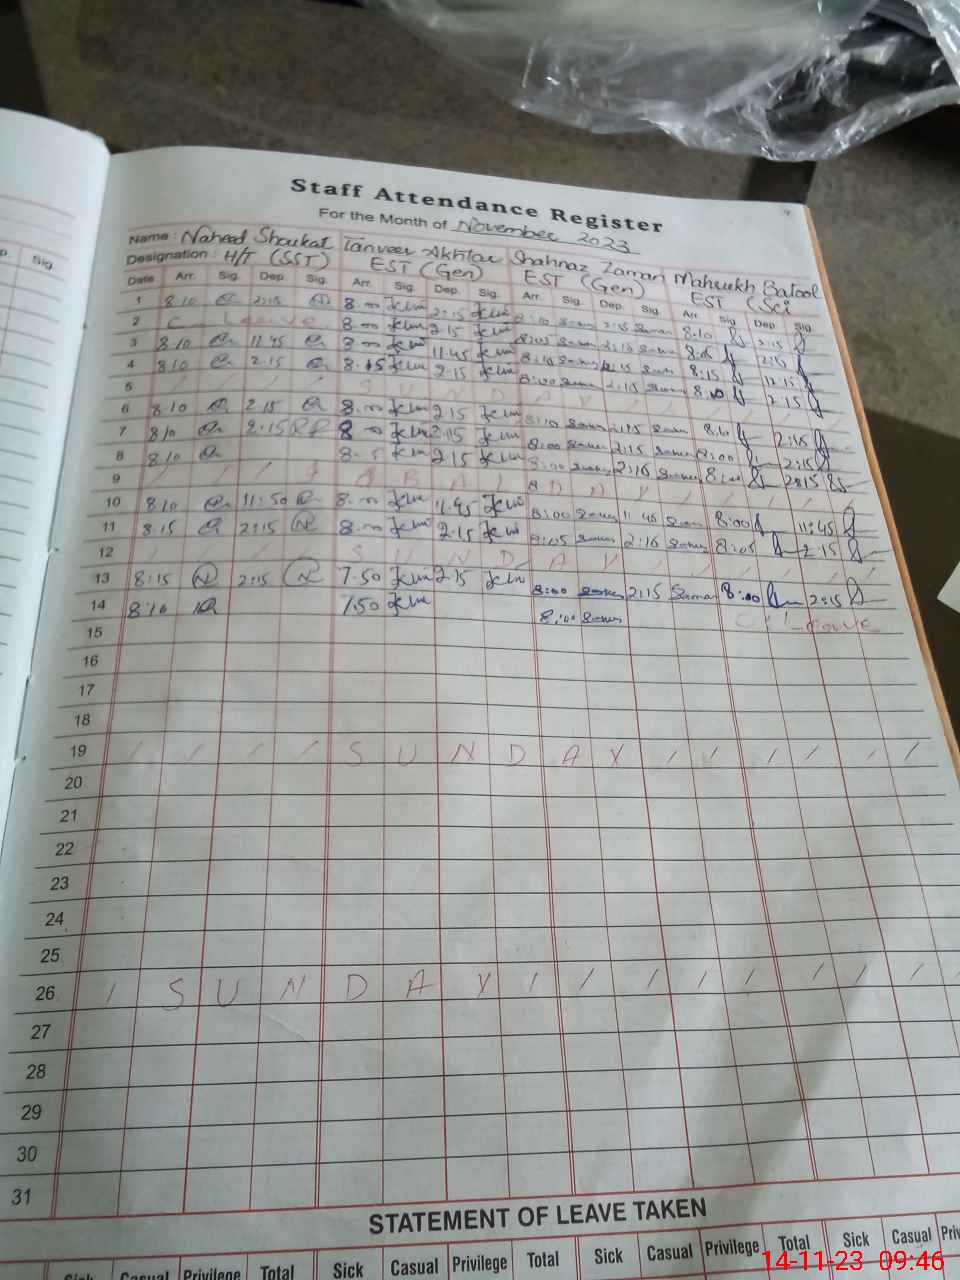 Staff Attendance Register
For the Month of November 2023
Name: Naheed Shoukat Tanveer Akhtar Shahnaz Zaman Mahrukh Batool
Designation: H/T (SST) EST (Gen) EST (Gen) EST (Sci
Sig.
Date Arr. Sig. Dep. Sig. Arr. Sig. Dep. Sig. Arr. Sig. Dep. Sig. Arr. Sig. Dep. Sig.
1 8.10 2:15 8.00 2:15 8:10 2:15 8.10 2:15
2 C Leave 8.00 2.15 8:05 2:15 8.05 2:15
3 8.10 11.45 8.00 11.45 8:10 12:15 8:15 12:15
4 8.10 2.15 8.15 2.15 8:00 2:15 8.10 2:15
5 / / / / S U N D A Y / / / / / /
6 8.10 2.15 8.00 2.15 8:10 2:15 2:15
7 8.10 2.15 8.00 2.15 8:00 2:15 8:00 2:15
8 8.10 8.5 2.15 8:00 2:15 2:15
9 / / / I Q B A L D A Y / / / / / /
10 8.10 11.50 8.00 11.45 8:00 11:45 8:00 11:45
11 8.15 2:15 8.00 2.15 8:05 2:15 8:05 2:15
12 / / / / S U N D A Y / / / / / /
13 8:15 2:15 7.50 2.15 8:00 2:15 8:00 2:15
14 8:10 7.50 8:00 C/Leave
15
16
17
18
19 / / / / S U N D A Y / / / / / /
20
21
22
23
24
25
26 / S U N D A Y / / / / / / / / /
27
28
29
30
31
STATEMENT OF LEAVE TAKEN
Sick Casual Privilege Total Sick Casual Privilege Total Sick Casual Privilege Total Sick Casual Pri
14-11-23 09:46